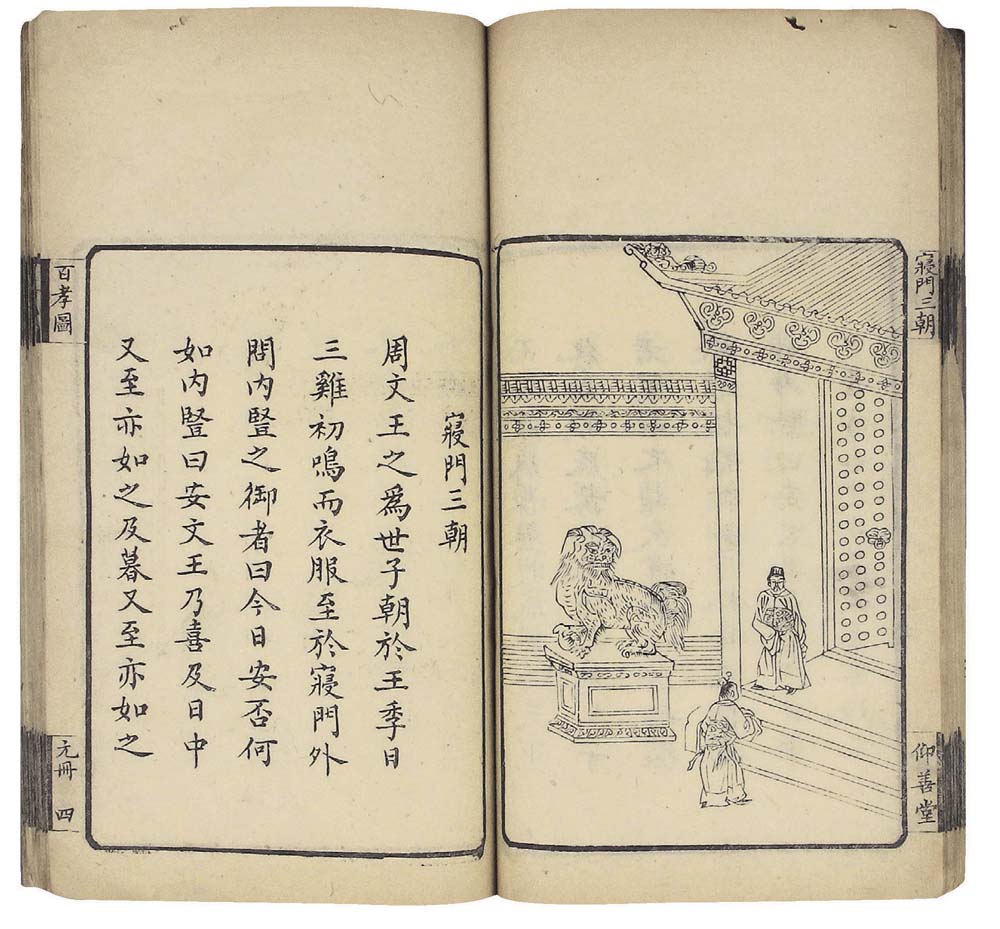 寢門三朝
仰善堂
寢門三朝
周文王之爲世子朝於王季日
三雞初鳴而衣服至於寢門外
問內豎之御者曰今日安否何
如內豎曰安文王乃喜及日中
又至亦如之及暮又至亦如之
百孝圖
元冊 四